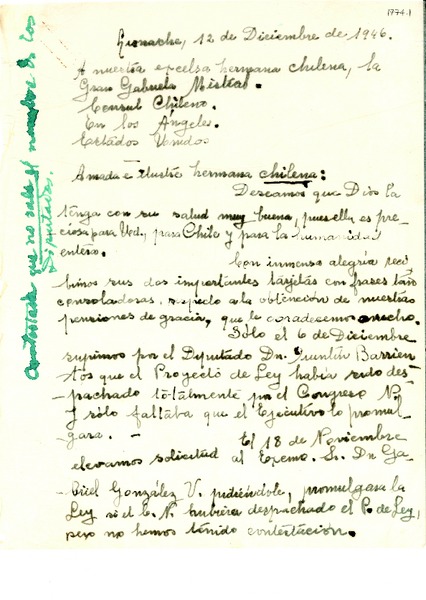 1974.1
12 de Diciembre de 1946.
A nuestra excelsa hermana chilena, la
Gran Gabriela Mistral.
Consul Chileno.
En los Ángeles.
Estados Unidos
Amada e Ilustre hermana chilena:
Deseamos que Dios la
tenga con su salud muy buena, pues ella, es pre-
ciosa para Ud., para Chile y para la humanidad
entera.
Con inmensa alegria reci
bimos sus dos importantes tarjetas con frases tan
consoladoras, respecto a la obtención de nuestras
pensiones de gracia, que le agradecemos mucho.
Sólo el 6 de Diciembre
supimos por el Diputado Dn. Quintín Barrien-
tos que el Proyecto de Ley había sido des-
pachado totalmente por el Congreso N.
y sólo faltaba que el Ejecutivo lo promul-
gara. -
El 18 de Noviembre
elevamos solicitud al Excmo. Sr. Dn Ga-
briel González V. pidiéndole, promulgara la
Ley si el C. N. hubiera despachado el P. de Ley,
pero no hemos tenido contestación.
que no sale el nombre de los
Diputados.